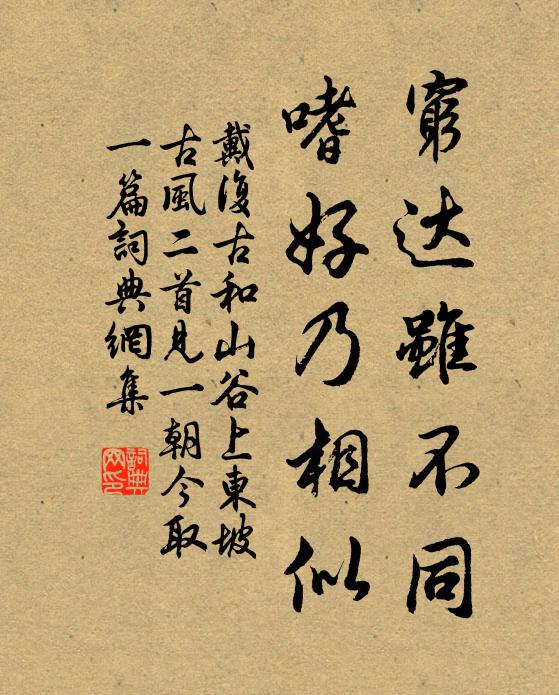 窮达雖不同
嗜好乃相似
戴復古和山谷上東坡
古風二首見一朝今取
一篇詞典網集
詞典网印